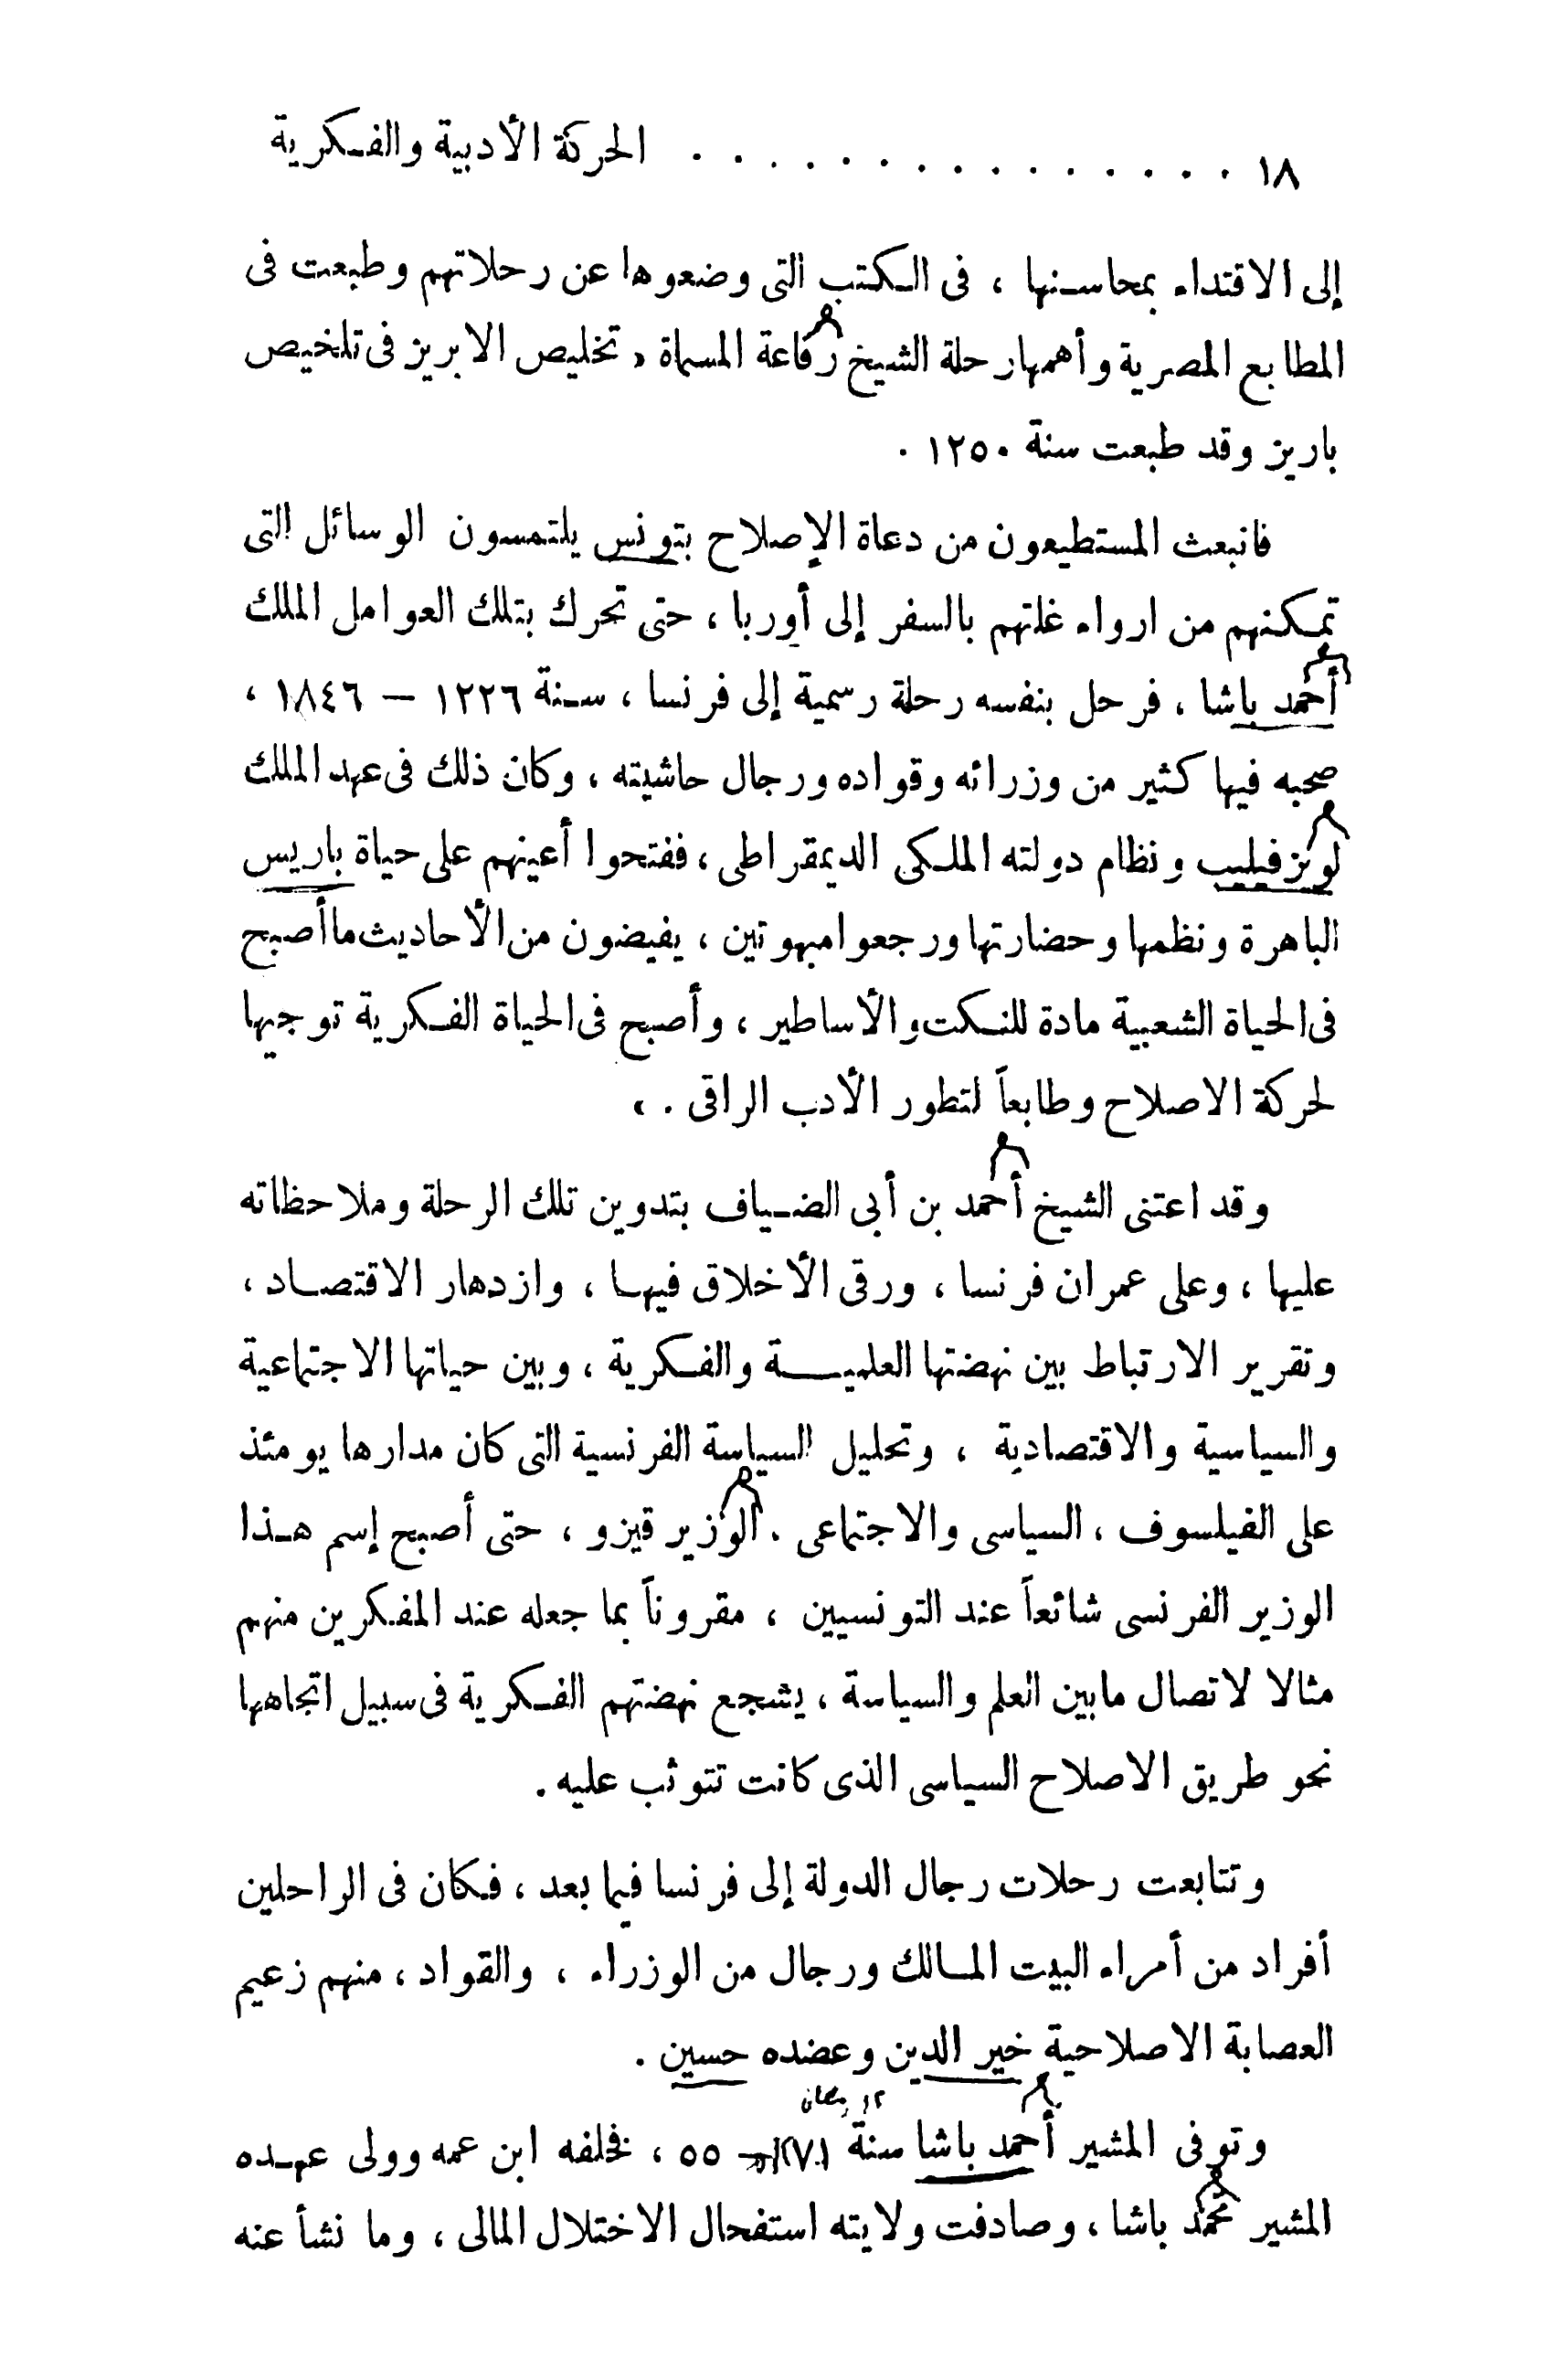 ١٨ . . . . . . . . . . . . . . . الحركة الأدبية والفكرية
إلى الاقتداء بمحاسنها ، فى الكتب التى وضعوها عن رحلاتهم وطبعت فى
المطابع المصرية وأهمها رحلة الشيخ رفاعة المسماة « تخليص الابريز فى تلخيص
باريز وقد طبعت سنة ١٢٥٠ .
فانبعث المستطيعون من دعاة الإصلاح بتونس يلتمسون الوسائل التى
تمكنهم من ارواء غلتهم بالسفر إلى أوربا ، حتى تحرك بتلك العوامل الملك
أحمد باشا ، فرحل بنفسه رحلة رسمية إلى فرنسا ، سنة ١٢٢٦ — ١٨٤٦ ،
صحبه فيها كثير من وزرائه وقواده ورجال حاشيته ، وكان ذلك فى عهد الملك
لويز فيليب ونظام دولته الملكى الديمقراطى ، ففتحوا أعينهم على حياة باريس
الباهرة ونظمها وحضارتها ورجعوا مبهوتين ، يفيضون من الأحاديث ما أصبح
فى الحياة الشعبية مادة للنكت والأساطير ، وأصبح فى الحياة الفكرية توجيها
لحركة الاصلاح وطابعاً لتطور الأدب الراقى . ،
وقد اعتنى الشيخ أحمد بن أبى الضياف بتدوين تلك الرحلة وملاحظاته
عليها ، وعلى عمران فرنسا ، ورقى الأخلاق فيها ، وازدهار الاقتصاد ،
وتقرير الارتباط بين نهضتها العلمية والفكرية ، وبين حياتها الاجتماعية
والسياسية والاقتصادية ، وتحليل السياسة الفرنسية التى كان مدارها يومئذ
على الفيلسوف ، السياسى والاجتماعى . الوزير قيزو ، حتى أصبح إسم هذا
الوزير الفرنسى شائعاً عند التونسيين ، مقروناً بما جعله عند المفكرين منهم
مثالا لاتصال مابين العلم والسياسة ، يشجع نهضتهم الفكرية فى سبيل اتجاهها
نحو طريق الاصلاح السياسى الذى كانت تتوثب عليه .
وتتابعت رحلات رجال الدولة إلى فرنسا فيما بعد ، فكان فى الراحلين
أفراد من أمراء البيت المالك ورجال من الوزراء ، والقواد ، منهم زعيم
العصابة الاصلاحية خير الدين وعضده حسين .
١٢ رمضان
وتوفى المشير أحمد باشا سنة ٥٥ ، فخلفه ابن عمه وولى عهده
المشير محمد باشا ، وصادفت ولايته استفحال الاختلال المالى ، وما نشأ عنه